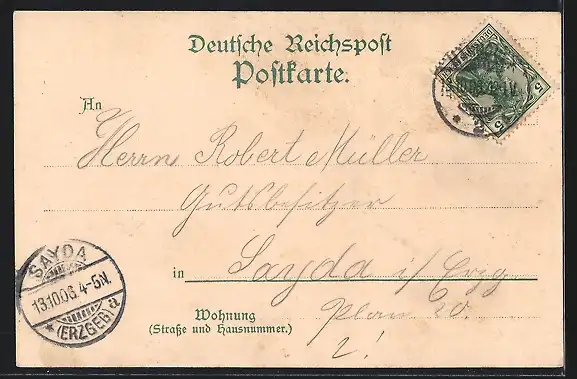 Deutsche Reichspost
Postkarte.
5
5
13.10.06.
An
Herrn Robert Müller
Gutsbesitzer
in Sayda i/Erzg.
Wohnung
(Straße und Hausnummer.)
20.
2!
SAYDA
13.10.06. 4-5N.
* (ERZGEB) a